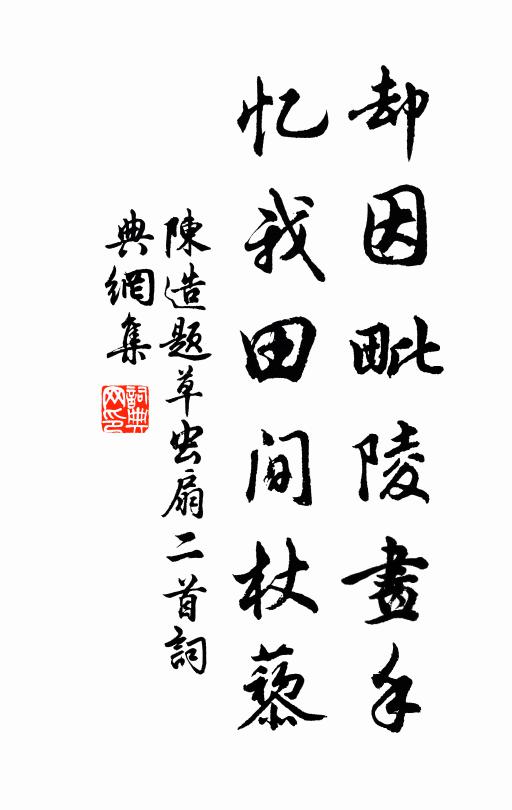 却因毗陵畫手
忆我田间杖藜
陳造題草虫扇二首詞
典網集
詞典
网印